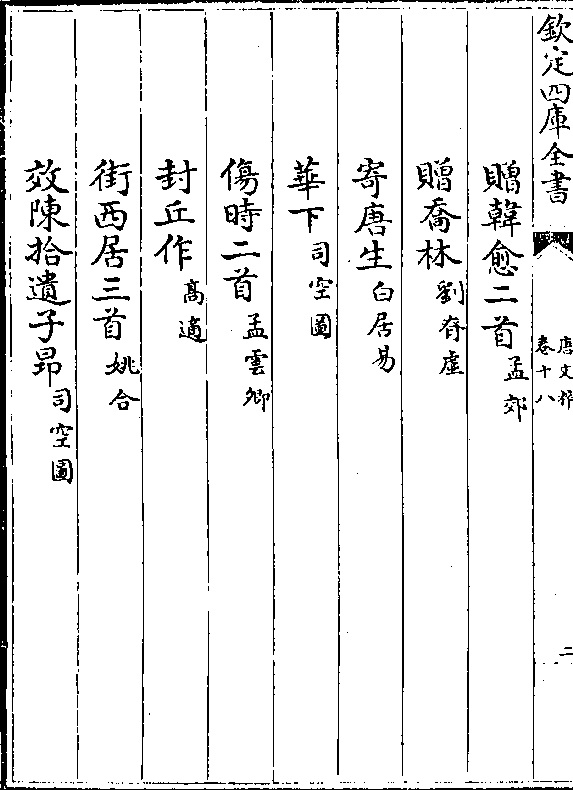 欽定四庫全書
唐文粹
卷十八
二
贈韓愈二首 孟郊
贈喬林 劉脊虛
寄唐生 白居易
華下 司空圖
傷時二首 孟雲卿
封丘作 高適
街西居三首 姚合
效陳拾遺子昻 司空圖